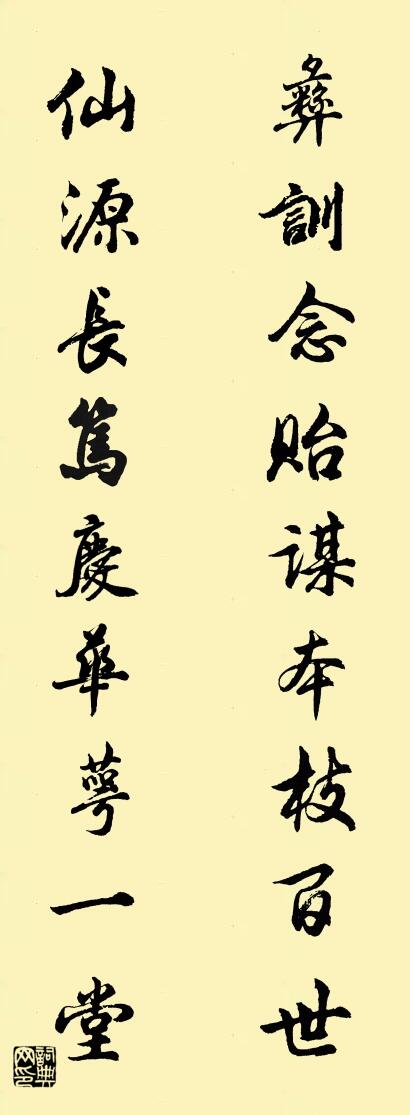 彝訓念貽謀本枝百世
仙源長篤慶華萼一堂
詞典網印